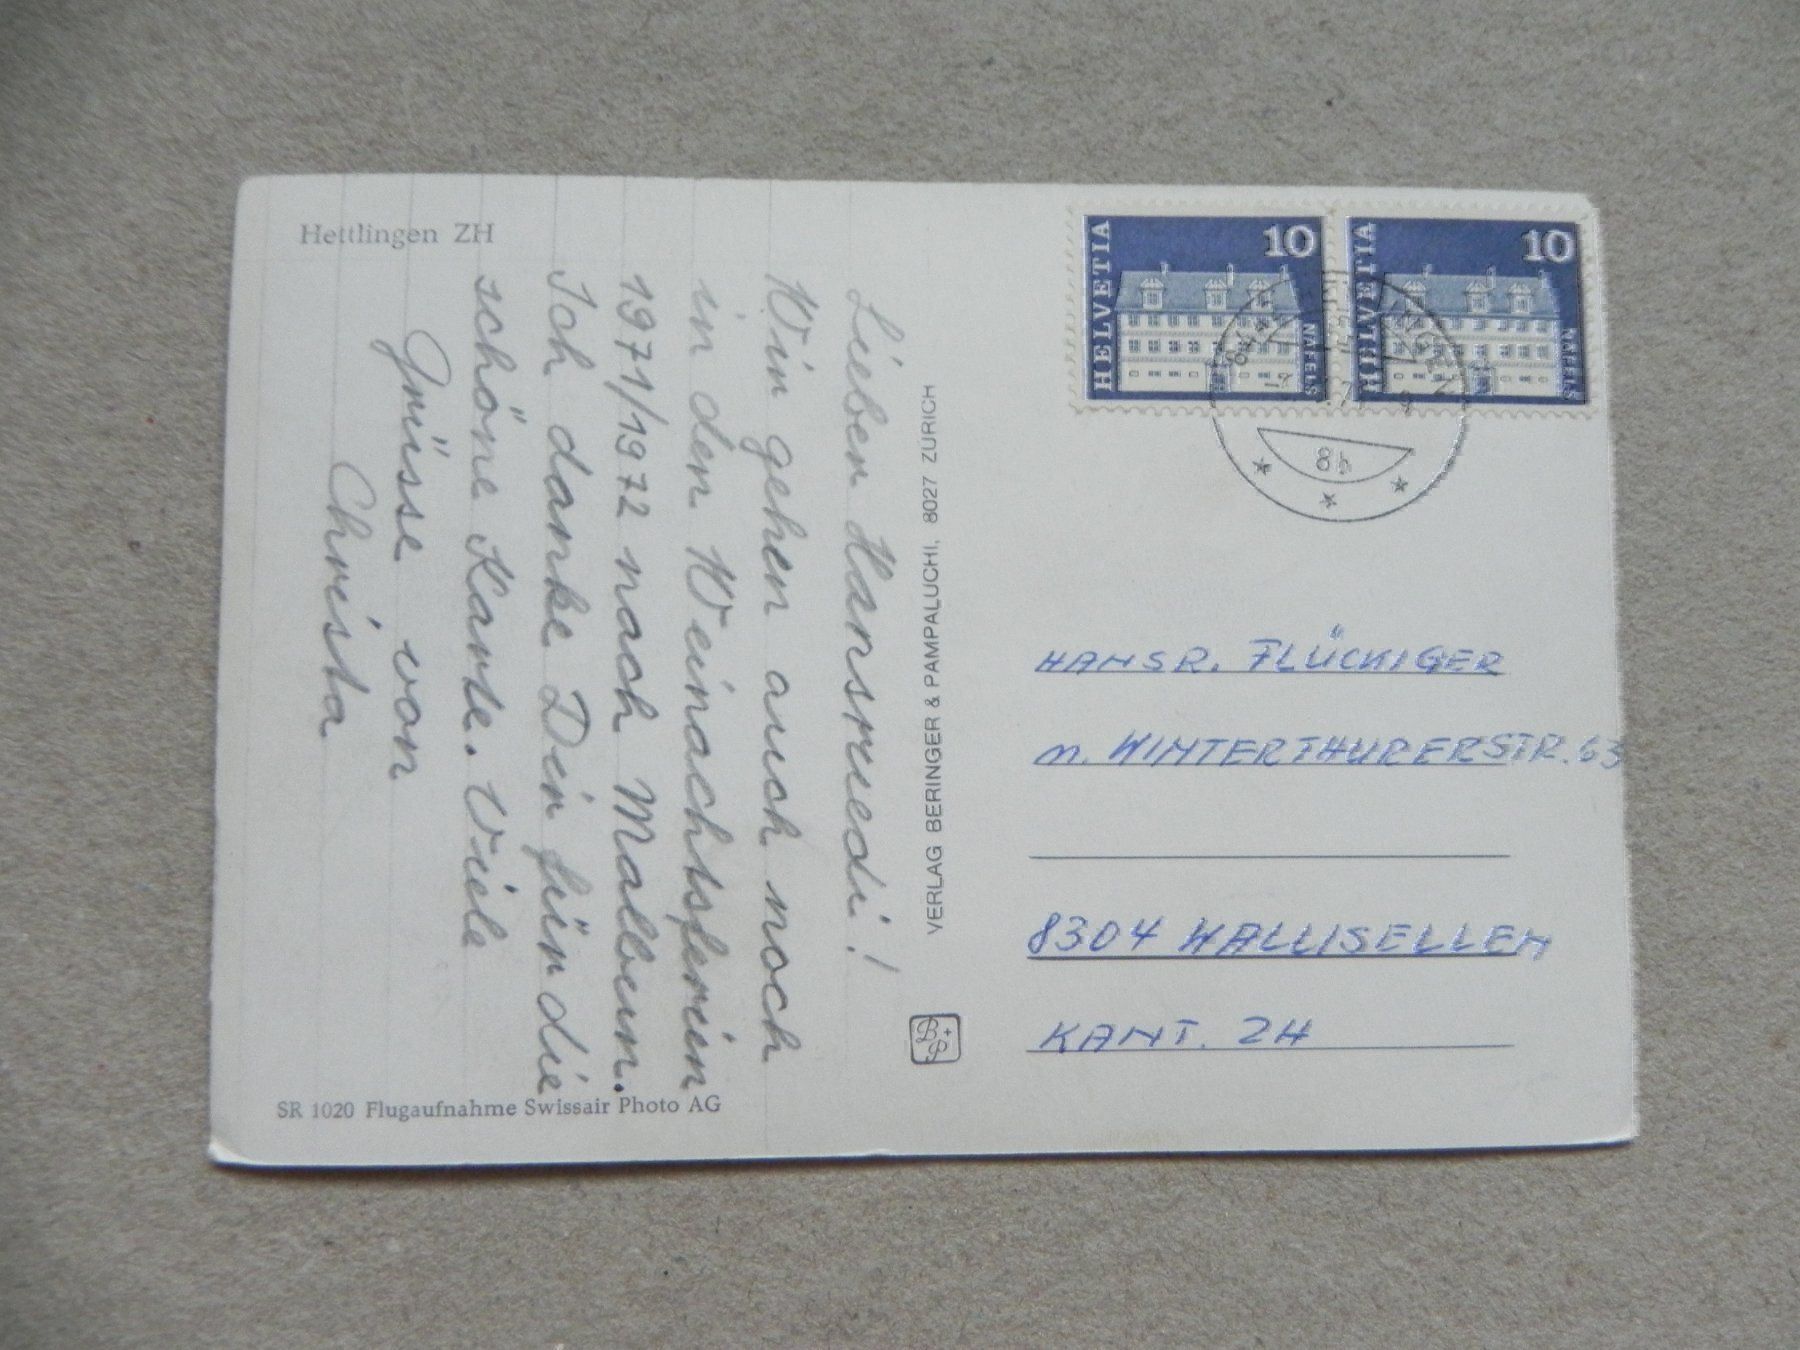 Hettlingen ZH
Lieber Hansruedi!
Wir gehen auch noch
in den Weinachtsferien
1971/1972 nach Malbun.
Ich danke Dir für die
schöne Karte. Viele
Grüsse von
Christa
SR 1020 Flugaufnahme Swissair Photo AG
VERLAG BERINGER & PAMPALUCHI, 8027 ZÜRICH
B+P
HELVETIA 10 NÄFELS
HELVETIA 10 NÄFELS
HANSR. FLÜCKIGER
n. WINTERTHURERSTR. 63
8304 WALLISELLEN
KANT. ZH